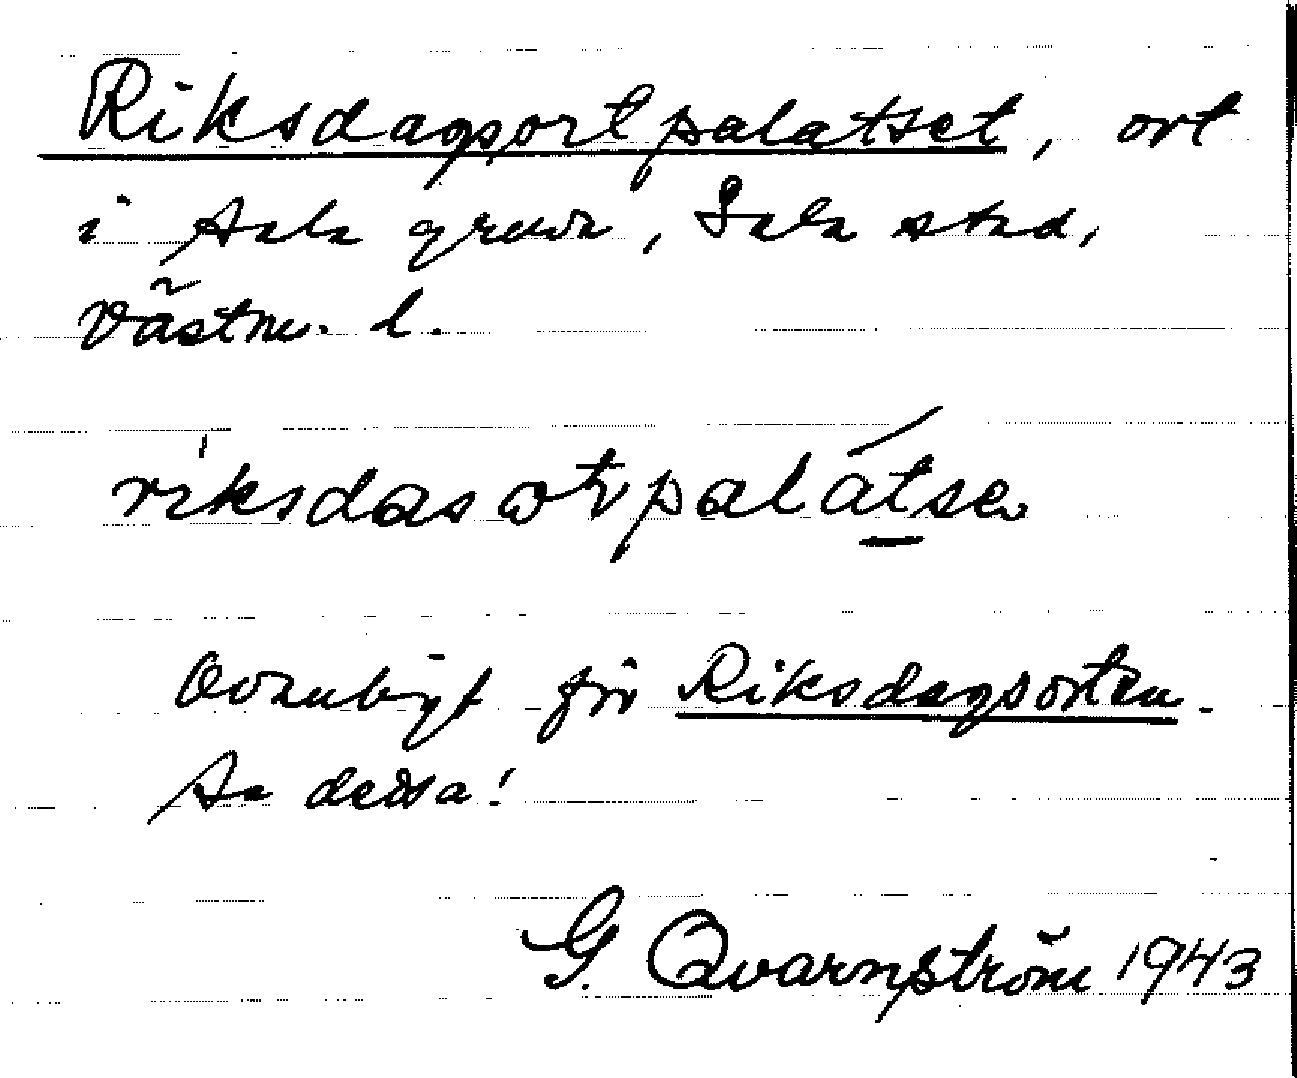 Riksdagsortpalatset, ort
i Sala gruva, Sala stad,
Västm. l.
riksdasotpalátse
Ovanligt för Riksdagsorten.
Se dessa!
G. Qvarnström 1943